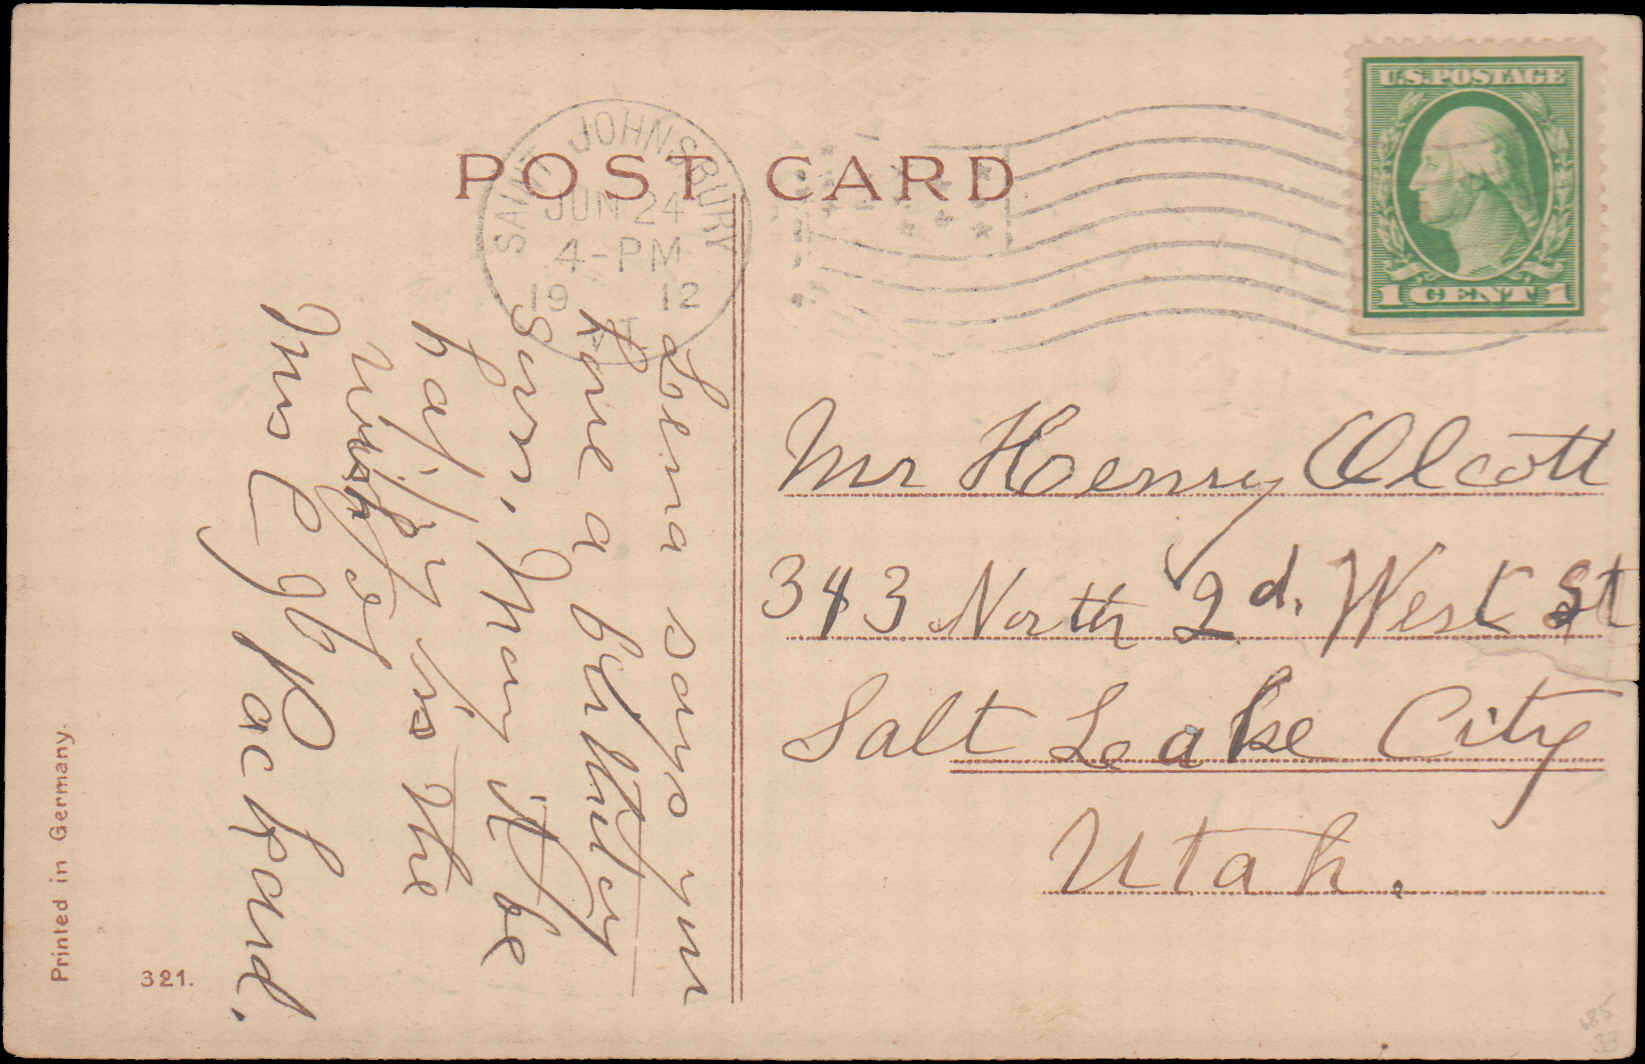 POST CARD
SAINT JOHNSBURY
JUN 24
4-PM
19 12
VT
U.S. POSTAGE
1 CENT 1
Lena says you
have a birthday
soon, May it be
happy is the
wish of
Mrs Packard.
Mr Henry Olcott
343 North 2d. West St
Salt Lake City
Utah.
Printed in Germany.
321.